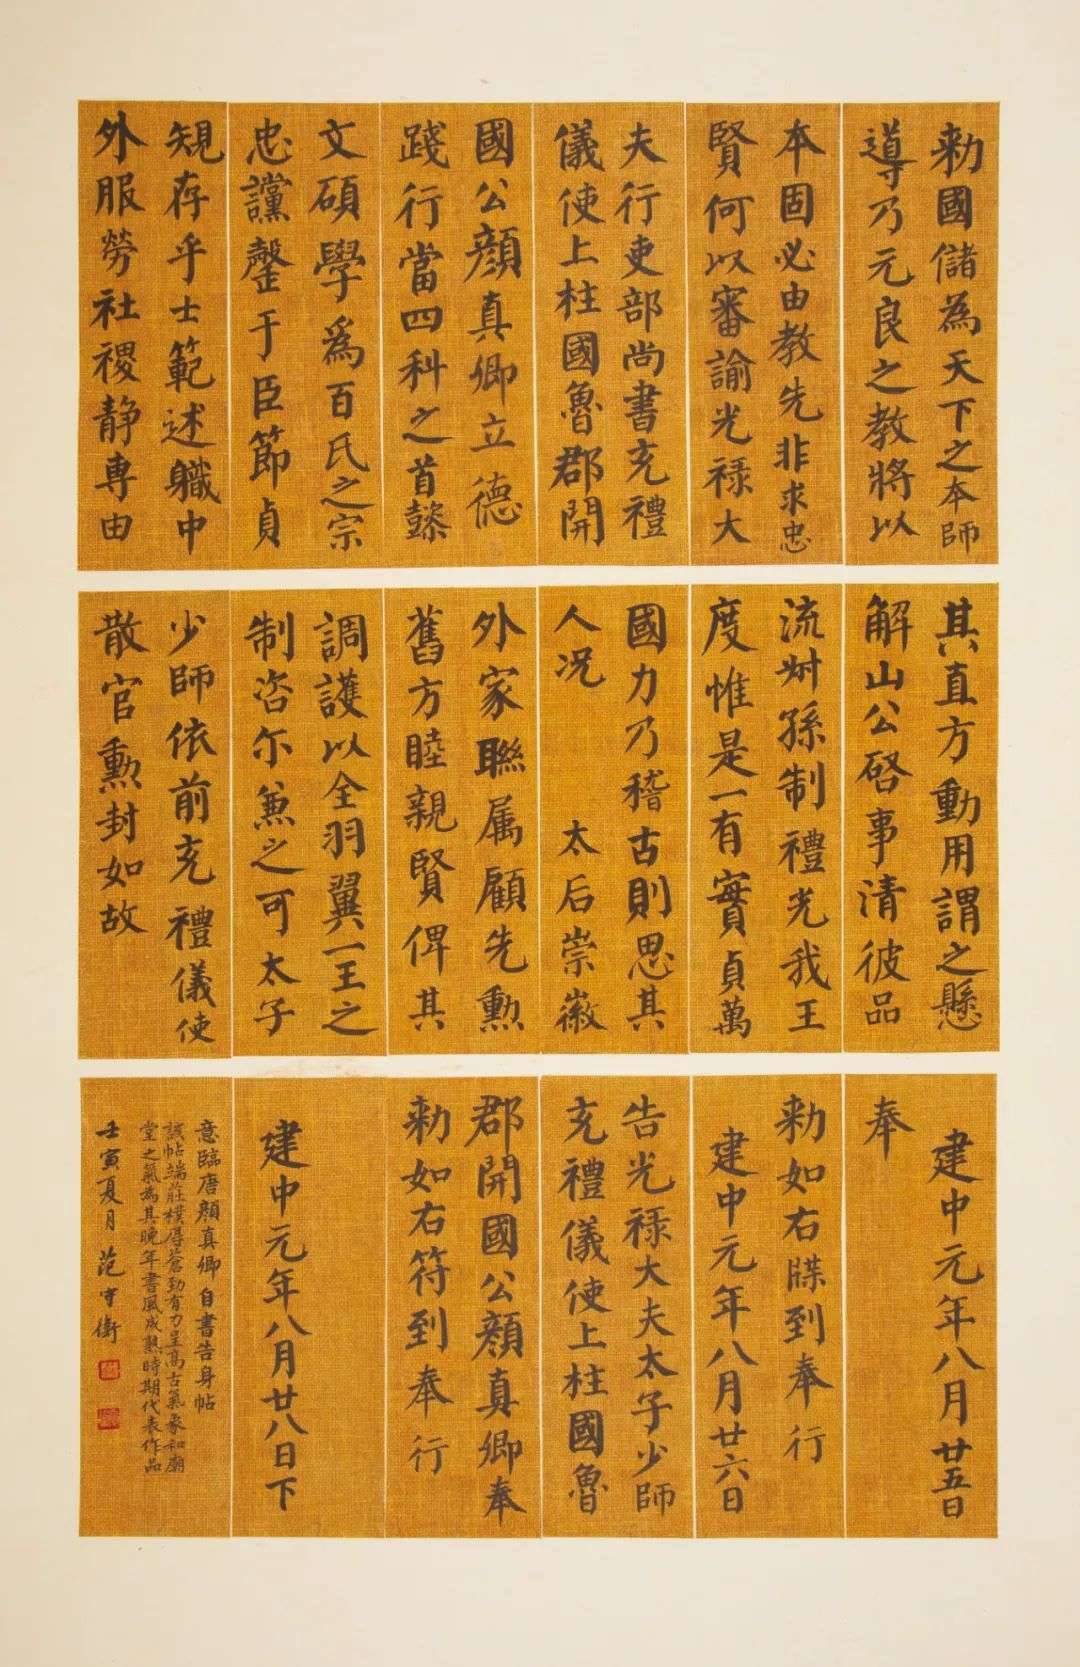 勑國儲為天下之本師
導乃元良之教將以
本固必由教先非求忠
賢何以審諭光禄大
夫行吏部尚書充禮
儀使上柱國魯郡開
國公顏真卿立德
踐行當四科之首懿
文碩學為百氏之宗
忠讜罄于臣節貞
規存乎士範述職中
外服勞社稷静專由
其直方動用謂之懸
解山公啓事清彼品
流叔孫制禮光我王
度惟是一有實貞萬
國力乃稽古則思其
人況 太后崇徽
外家聯属顧先勳
舊方睦親賢俾其
調護以全羽翼一王之
制咨尔兼之可太子
少師依前充禮儀使
散官勳封如故
建中元年八月廿五日
奉
勑如右牒到奉行
建中元年八月廿六日
告光禄大夫太子少師
充禮儀使上柱國魯
郡開國公顏真卿奉
勑如右符到奉行
建中元年八月廿八日下
意臨唐顏真卿自書告身帖
該帖端莊樸厚蒼勁有力呈高古氣象和廟
堂之氣為其晚年書風成熟時期代表作品
壬寅夏月范守衛